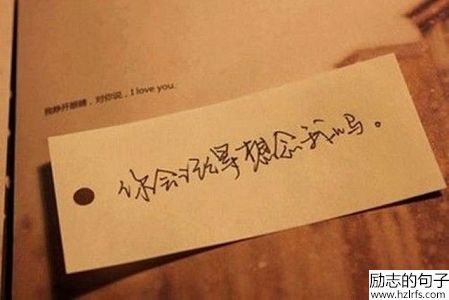 我睁开眼睛，对你说，I love you.
你会经常想念我吗。
励志的句子
www.hzlrfs.com